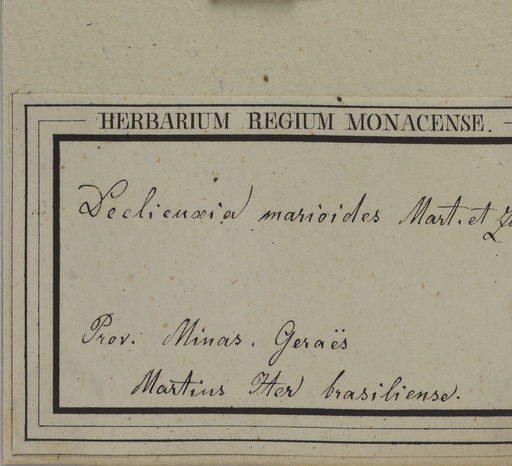 HERBARIUM REGIUM MONACENSE.
Declieuxia marioides Mart. et
Prov. Minas. Geraës
Martius Iter brasiliense.